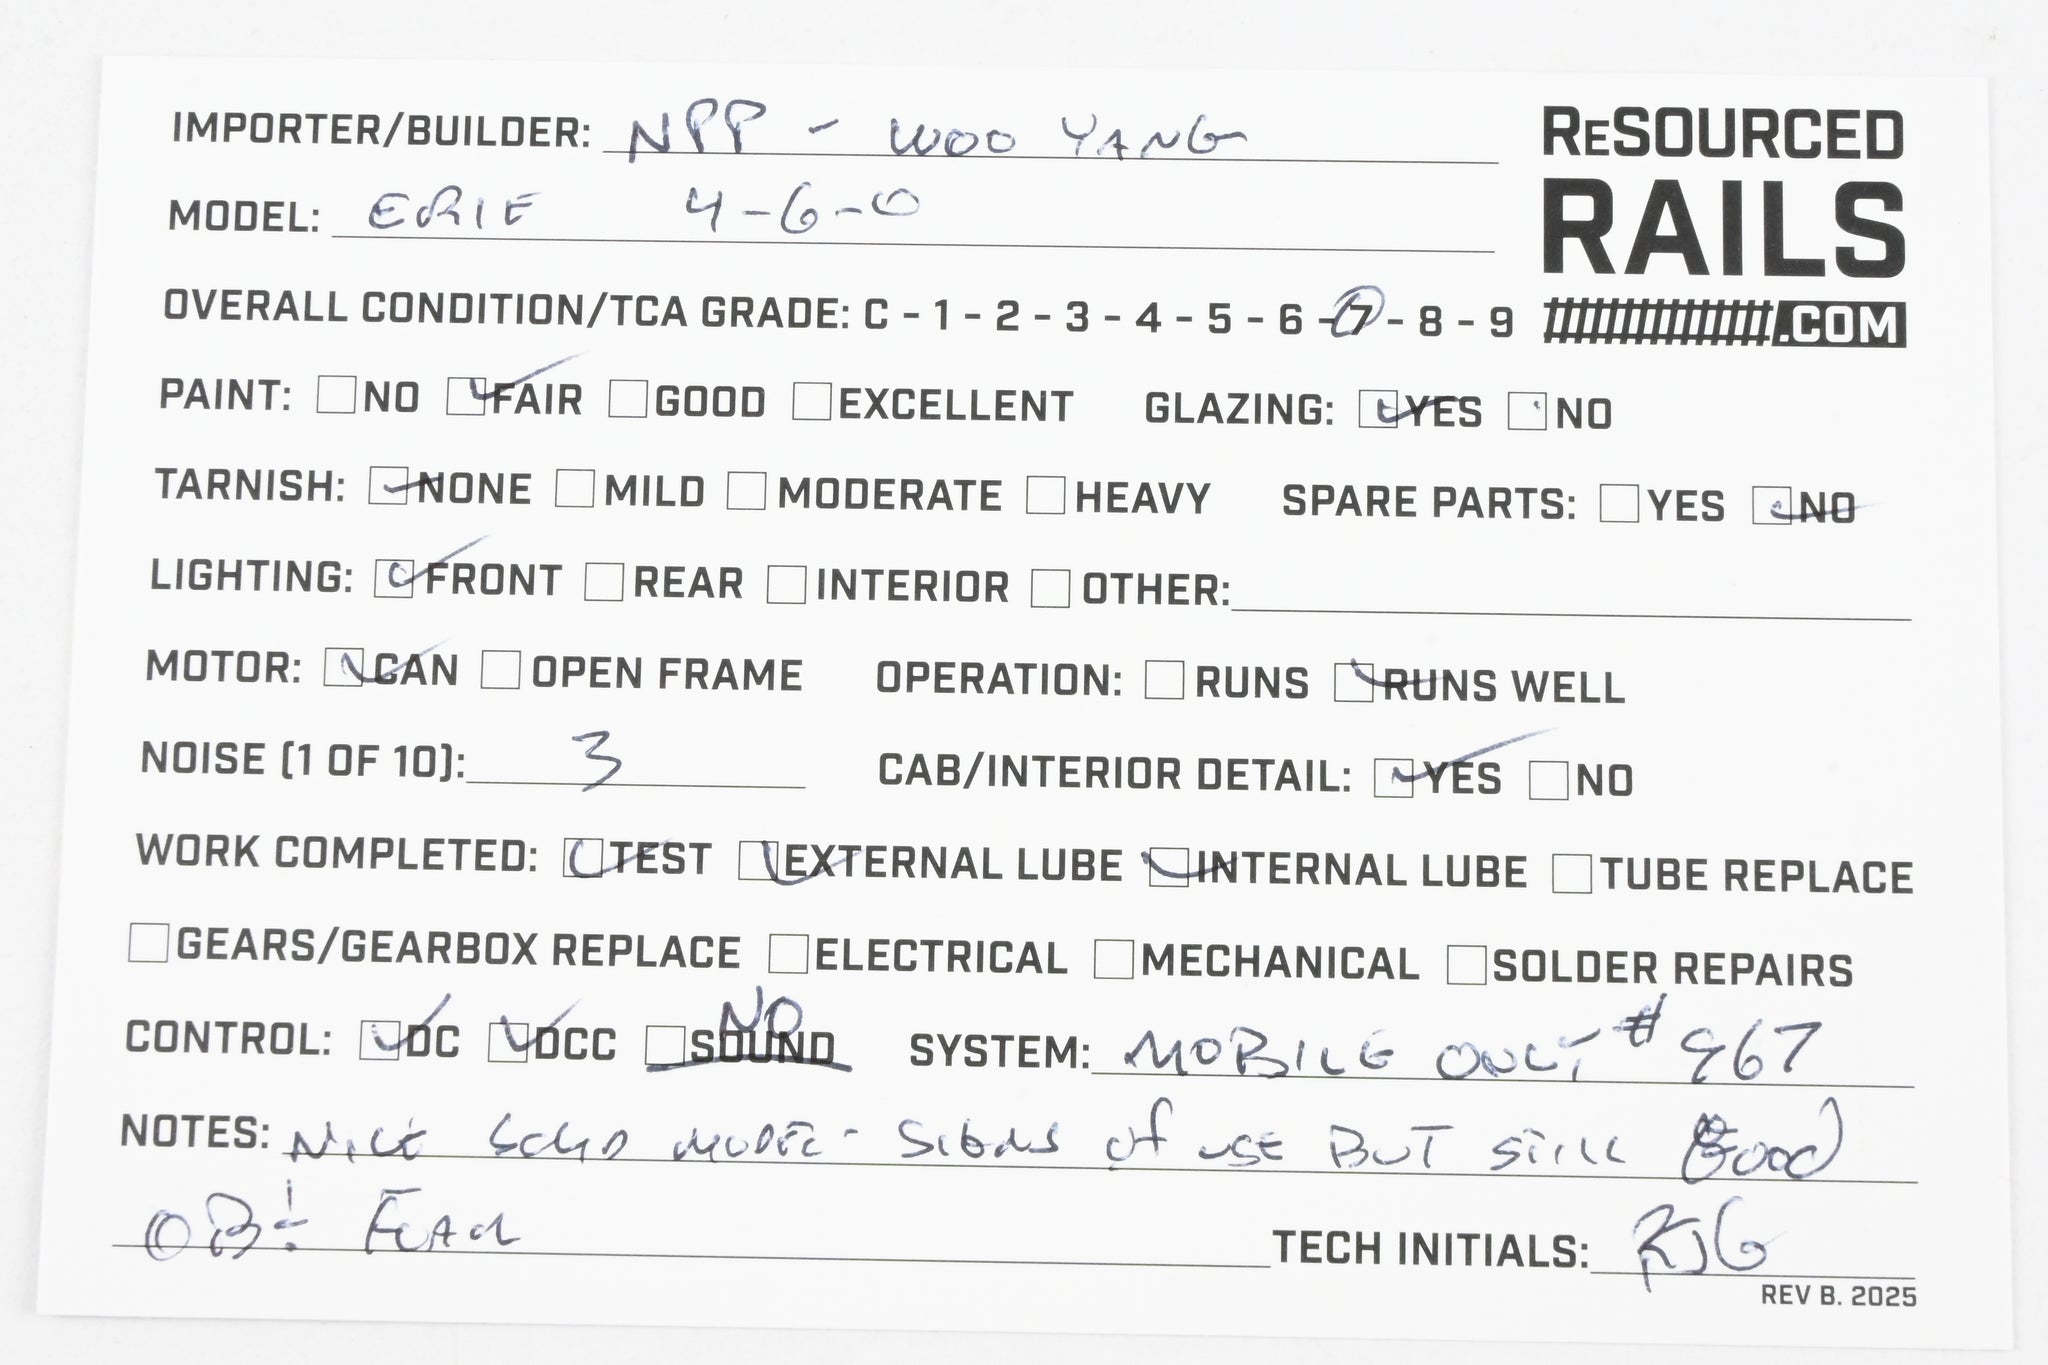 IMPORTER/BUILDER: NPP - WOO YANG
ReSOURCED
RAILS
.COM
MODEL: ERIE 4-6-0
OVERALL CONDITION/TCA GRADE: C - 1 - 2 - 3 - 4 - 5 - 6 - 7 - 8 - 9
PAINT: NO FAIR GOOD EXCELLENT GLAZING: YES NO
TARNISH: NONE MILD MODERATE HEAVY SPARE PARTS: YES NO
LIGHTING: FRONT REAR INTERIOR OTHER:
MOTOR: CAN OPEN FRAME OPERATION: RUNS RUNS WELL
NOISE (1 OF 10): 3 CAB/INTERIOR DETAIL: YES NO
WORK COMPLETED: TEST EXTERNAL LUBE INTERNAL LUBE TUBE REPLACE
GEARS/GEARBOX REPLACE ELECTRICAL MECHANICAL SOLDER REPAIRS
NO
CONTROL: DC DCC SOUND SYSTEM: MOBILE ONLY # 967
NOTES: NICE SOLID MODEL - SIGNS OF USE BUT STILL GOOD
OB:
TECH INITIALS: RJG
REV B. 2025